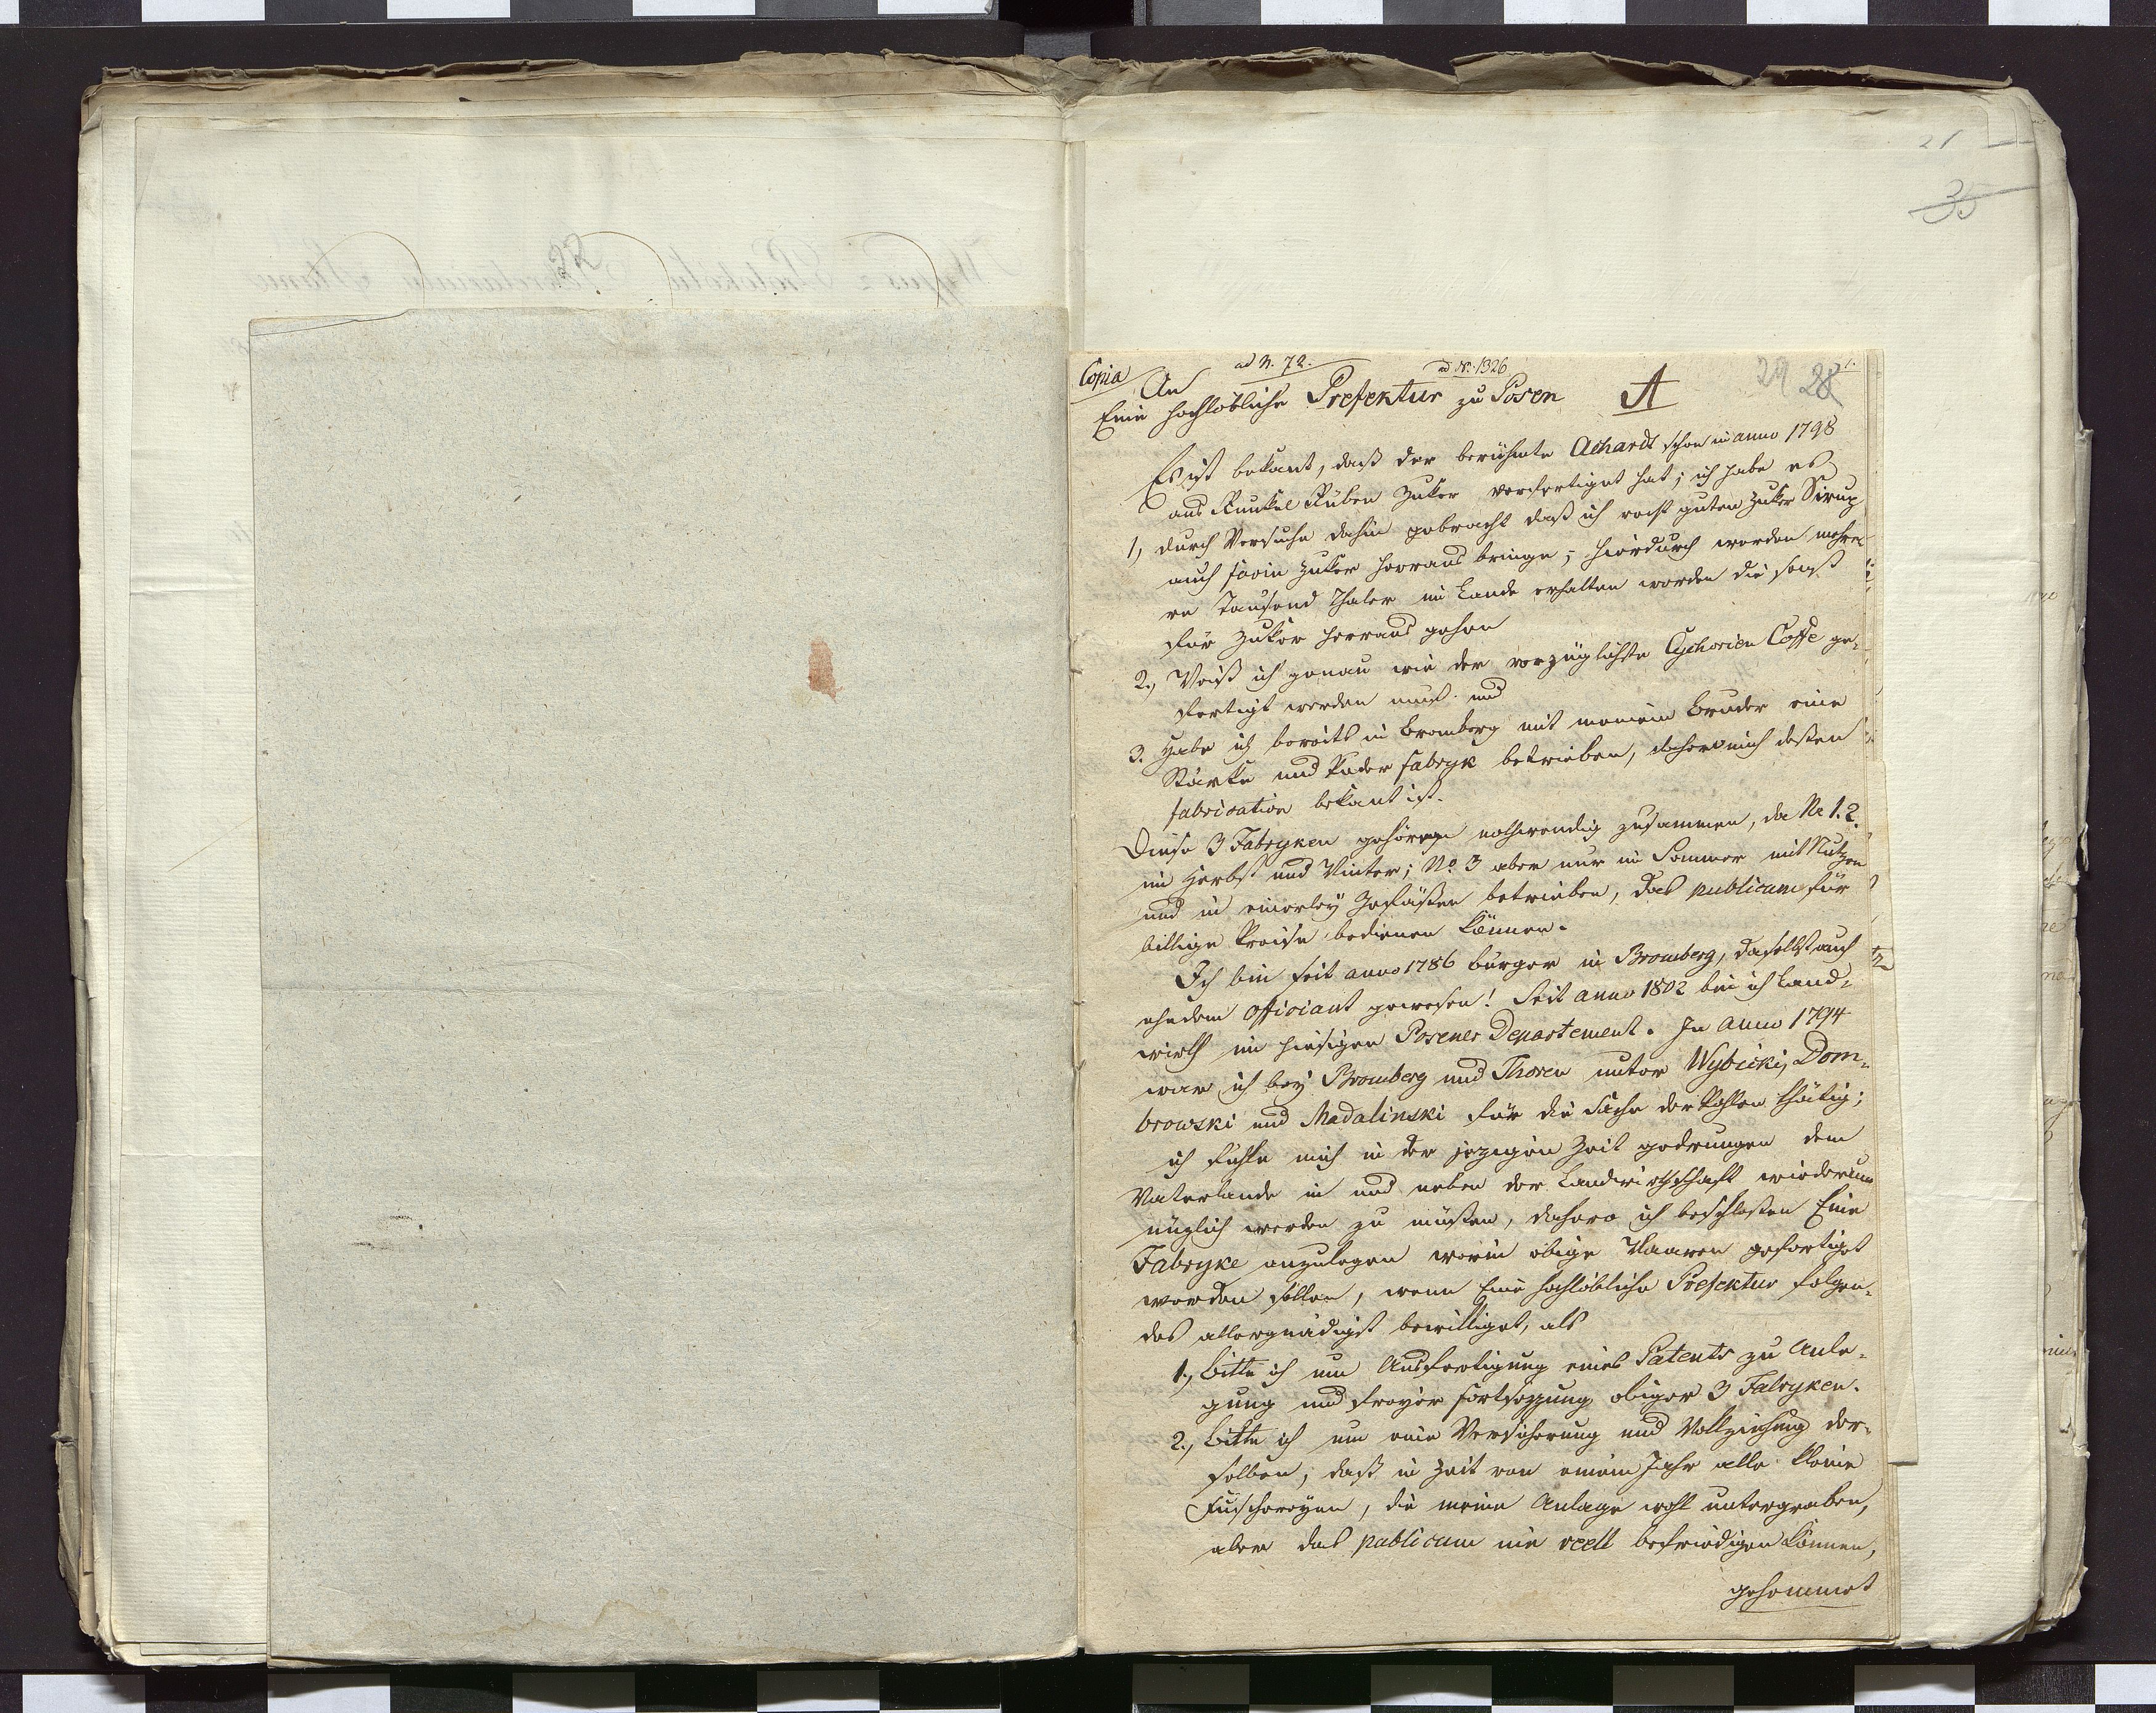 21
35
Copia
ad N. 72.
ad No. 1326
29 28
An
Eine hochlöbliche Prefektur zu Posen
A
Es ist bekant, daß der berühmte Achardt schon in anno 1798
aus Runkel Rüben Zuker verfertiget hat; ich habe es
1, durch Versuche dahin gebracht daß ich recht guten Zuker Sirup
auch fein Zuker herraus bringe; hierdurch werden mehre-
re Tausend Thaler im Lande erhalten werden die sonst
für Zuker herraus gehen
2, Weiß ich genau wie der vorzüglichste Cychorien Coffe ge-
fertigt werden muß. und
3. Habe ich bereits in Bromberg mit meinem Bruder eine
Stärke und Puder fabryk betrieben, dahero mich deßen
fabrication bekant ist.
Diese 3 Fabryken gehören nothwendig zusammen, da No 1. 2.
im Herbst und Winter; No. 3 aber nur im Sommer mit Nutzen
und in einerley Gefäßen betrieben, das publicum für
billige Preise bedienen können.
Ich bin seit anno 1786 bürger in Bromberg, daselbst auch
ehedem officiant gewesen! Seit anno 1802 bin ich Land-
wirth im hiesigen Posener Departement. In anno 1794
war ich bey Bromberg und Thoren unter Wybicki, Dom-
browski und Madalinski für die Sache der Pohlen thätig;
ich fühle mich in der jezigen Zeit gedrungen dem
Vaterlande in und neben der Landwirthschaft wiederum
nüzlich werden zu müßen, dahero ich beschloßen Eine
Fabryke anzulegen worin obige Waaren gefertiget
werden sollen, wenn Eine hochlöbliche Prefektur folgen-
des allergnädigst bewilliget, als
1., bitte ich um Ausfertigung eines Patents zu Anle-
gung und freyer fortsezzung obiger 3 Fabryken.
2., bitte ich um eine Versicherung und Vollziehung der-
selben, daß in Zeit von einem Jahr alle kleine
Fuschereyen, die meine Anlage wohl untergraben,
aber das publicum nie reell befriedigen können,
gehemmet